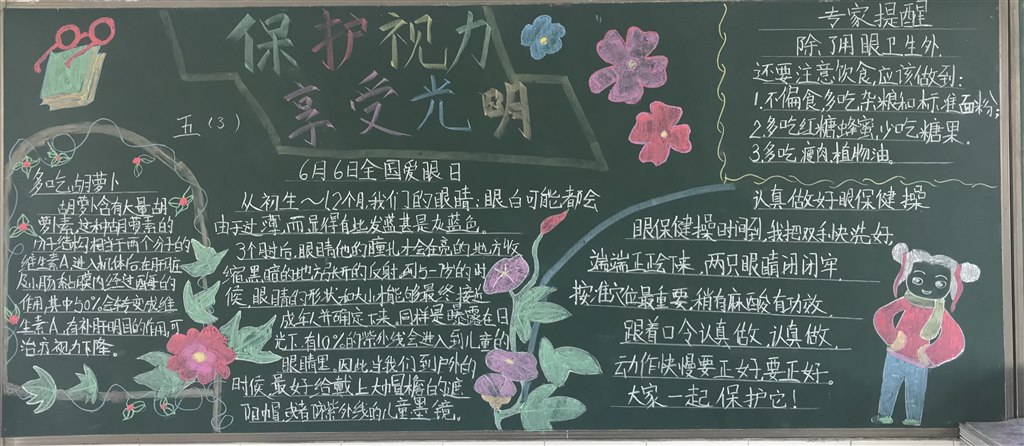 保护视力
享受光明
五（3）
多吃胡萝卜
胡萝卜含有大量胡
萝卜素,这种胡萝素的
分子结构相当于两个分子的
维生素A,进入机体后在肝脏
及小肠粘膜内经过酶的
作用,其中50%会转变成维
生素A,有补肝明目的作用,可
治疗视力下降。
6月6日全国爱眼日
从初生～12个月,我们的眼睛,眼白可能都会
由于过薄,而显得有些发蓝甚是灰蓝色。
3个时后,眼睛他的瞳孔才会在亮的地方收
缩,黑暗的地方张开的反射,到5-7岁的时
候,眼睛的形状和大小才能够最终接近
成年人并确定下来,同样是曝露在日
光下,有10%的紫外线会进入到儿童的
眼睛里,因此当我们到户外的
时候,最好给戴上大帽檐的遮
阳帽,或者防紫外线的儿童墨镜。
专家提醒
除了用眼卫生外
还要注意饮食,应该做到:
1.不偏食,多吃杂粮和标准面粉;
2.多吃红糖蜂蜜,少吃糖果。
3.多吃瘦肉植物油。
认真做好眼保健操
眼保健操时间到,我把双手快洗好,
端端正正坐下来,两只眼睛闭闭牢
按准穴位最重要,稍有麻酸有功效.
跟着口令认真做,认真做.
动作快慢要正好要正好。
大家一起保护它!